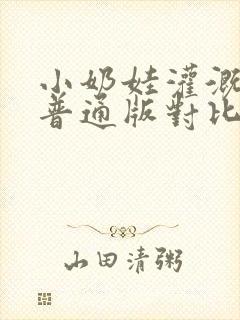 小奶娃灌溉
普通版對比
山田清粥